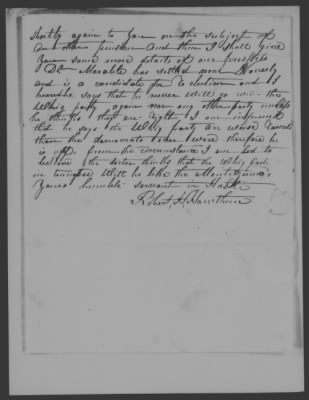 shortly again to you on the subject of
an other pension and then I shall give
you some more details of our
Dr Marable has settled near Waverly
and is a candidate for Election and I
says that he never will go with the
Whig party again nor any other party unless
he thinks they are right I am informed
that he says the Whig party are worse
than the democrats ever were therefore he
is off. from this circumstance I am led to
believe the doctor thinks that the Whig party
in tennessee Will be like the
Yours humble servant in Haste
Robert H. Hawthorn